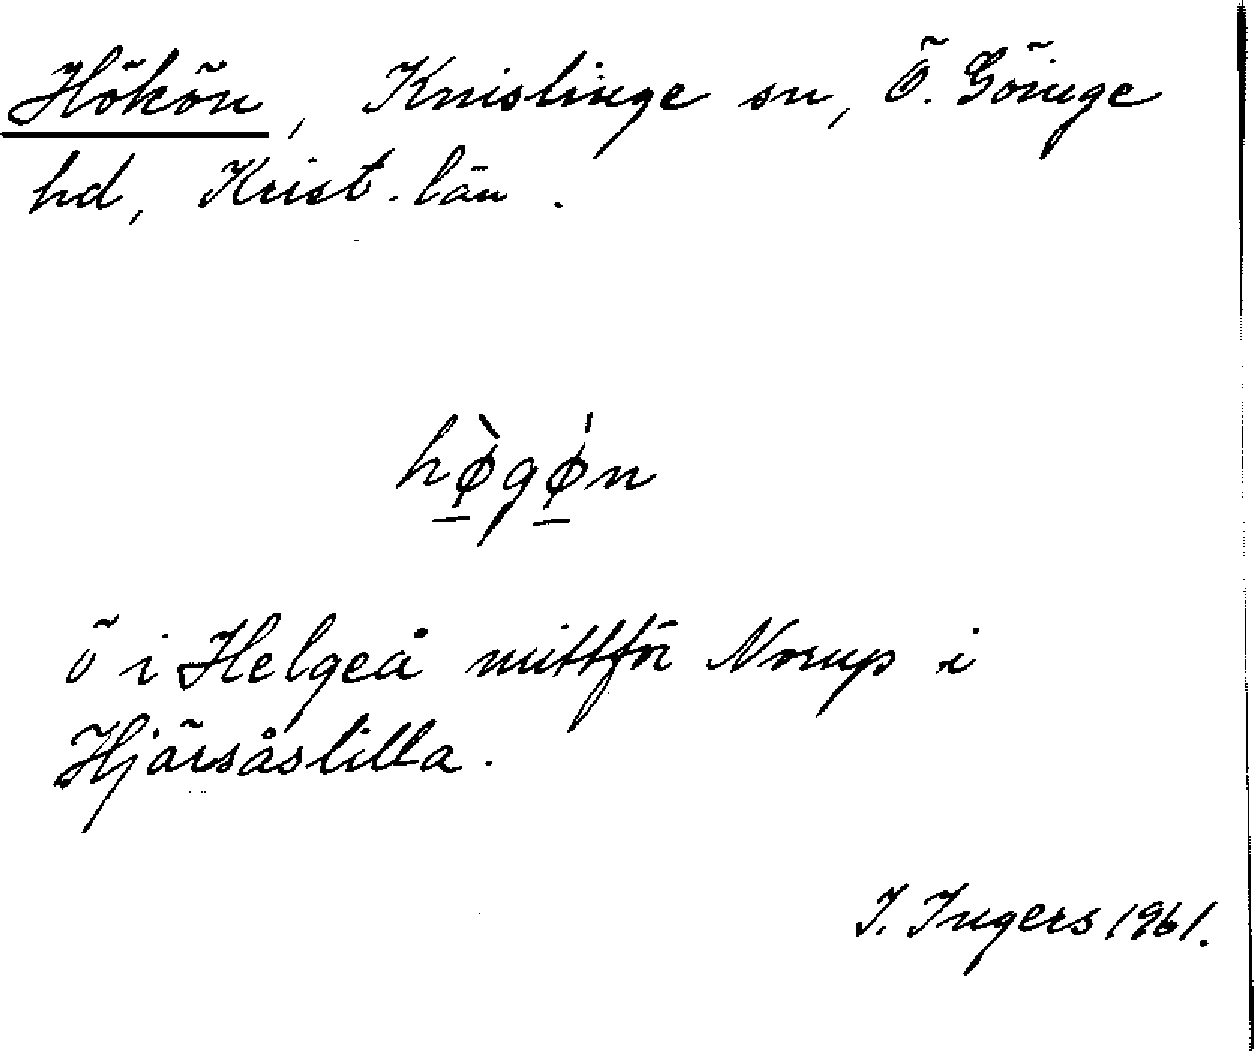 Hökön, Knislinge sn, Ö. Göinge
hd, Krist. län.
hø̠̀gǿ̠n
ö i Helgeå mittför Norup i
Hjärsåslilla.
I. Ingers 1961.